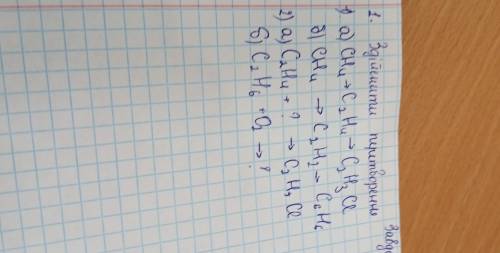 Завд
1. Здійснити перетворення
1) а) CH4 → C2H4 → C2H3Cl
б) CH4 → C2H2 → C6H6
2) а) C2H4 + ? → C2H4Cl
б) C2H6 + O2 → ?